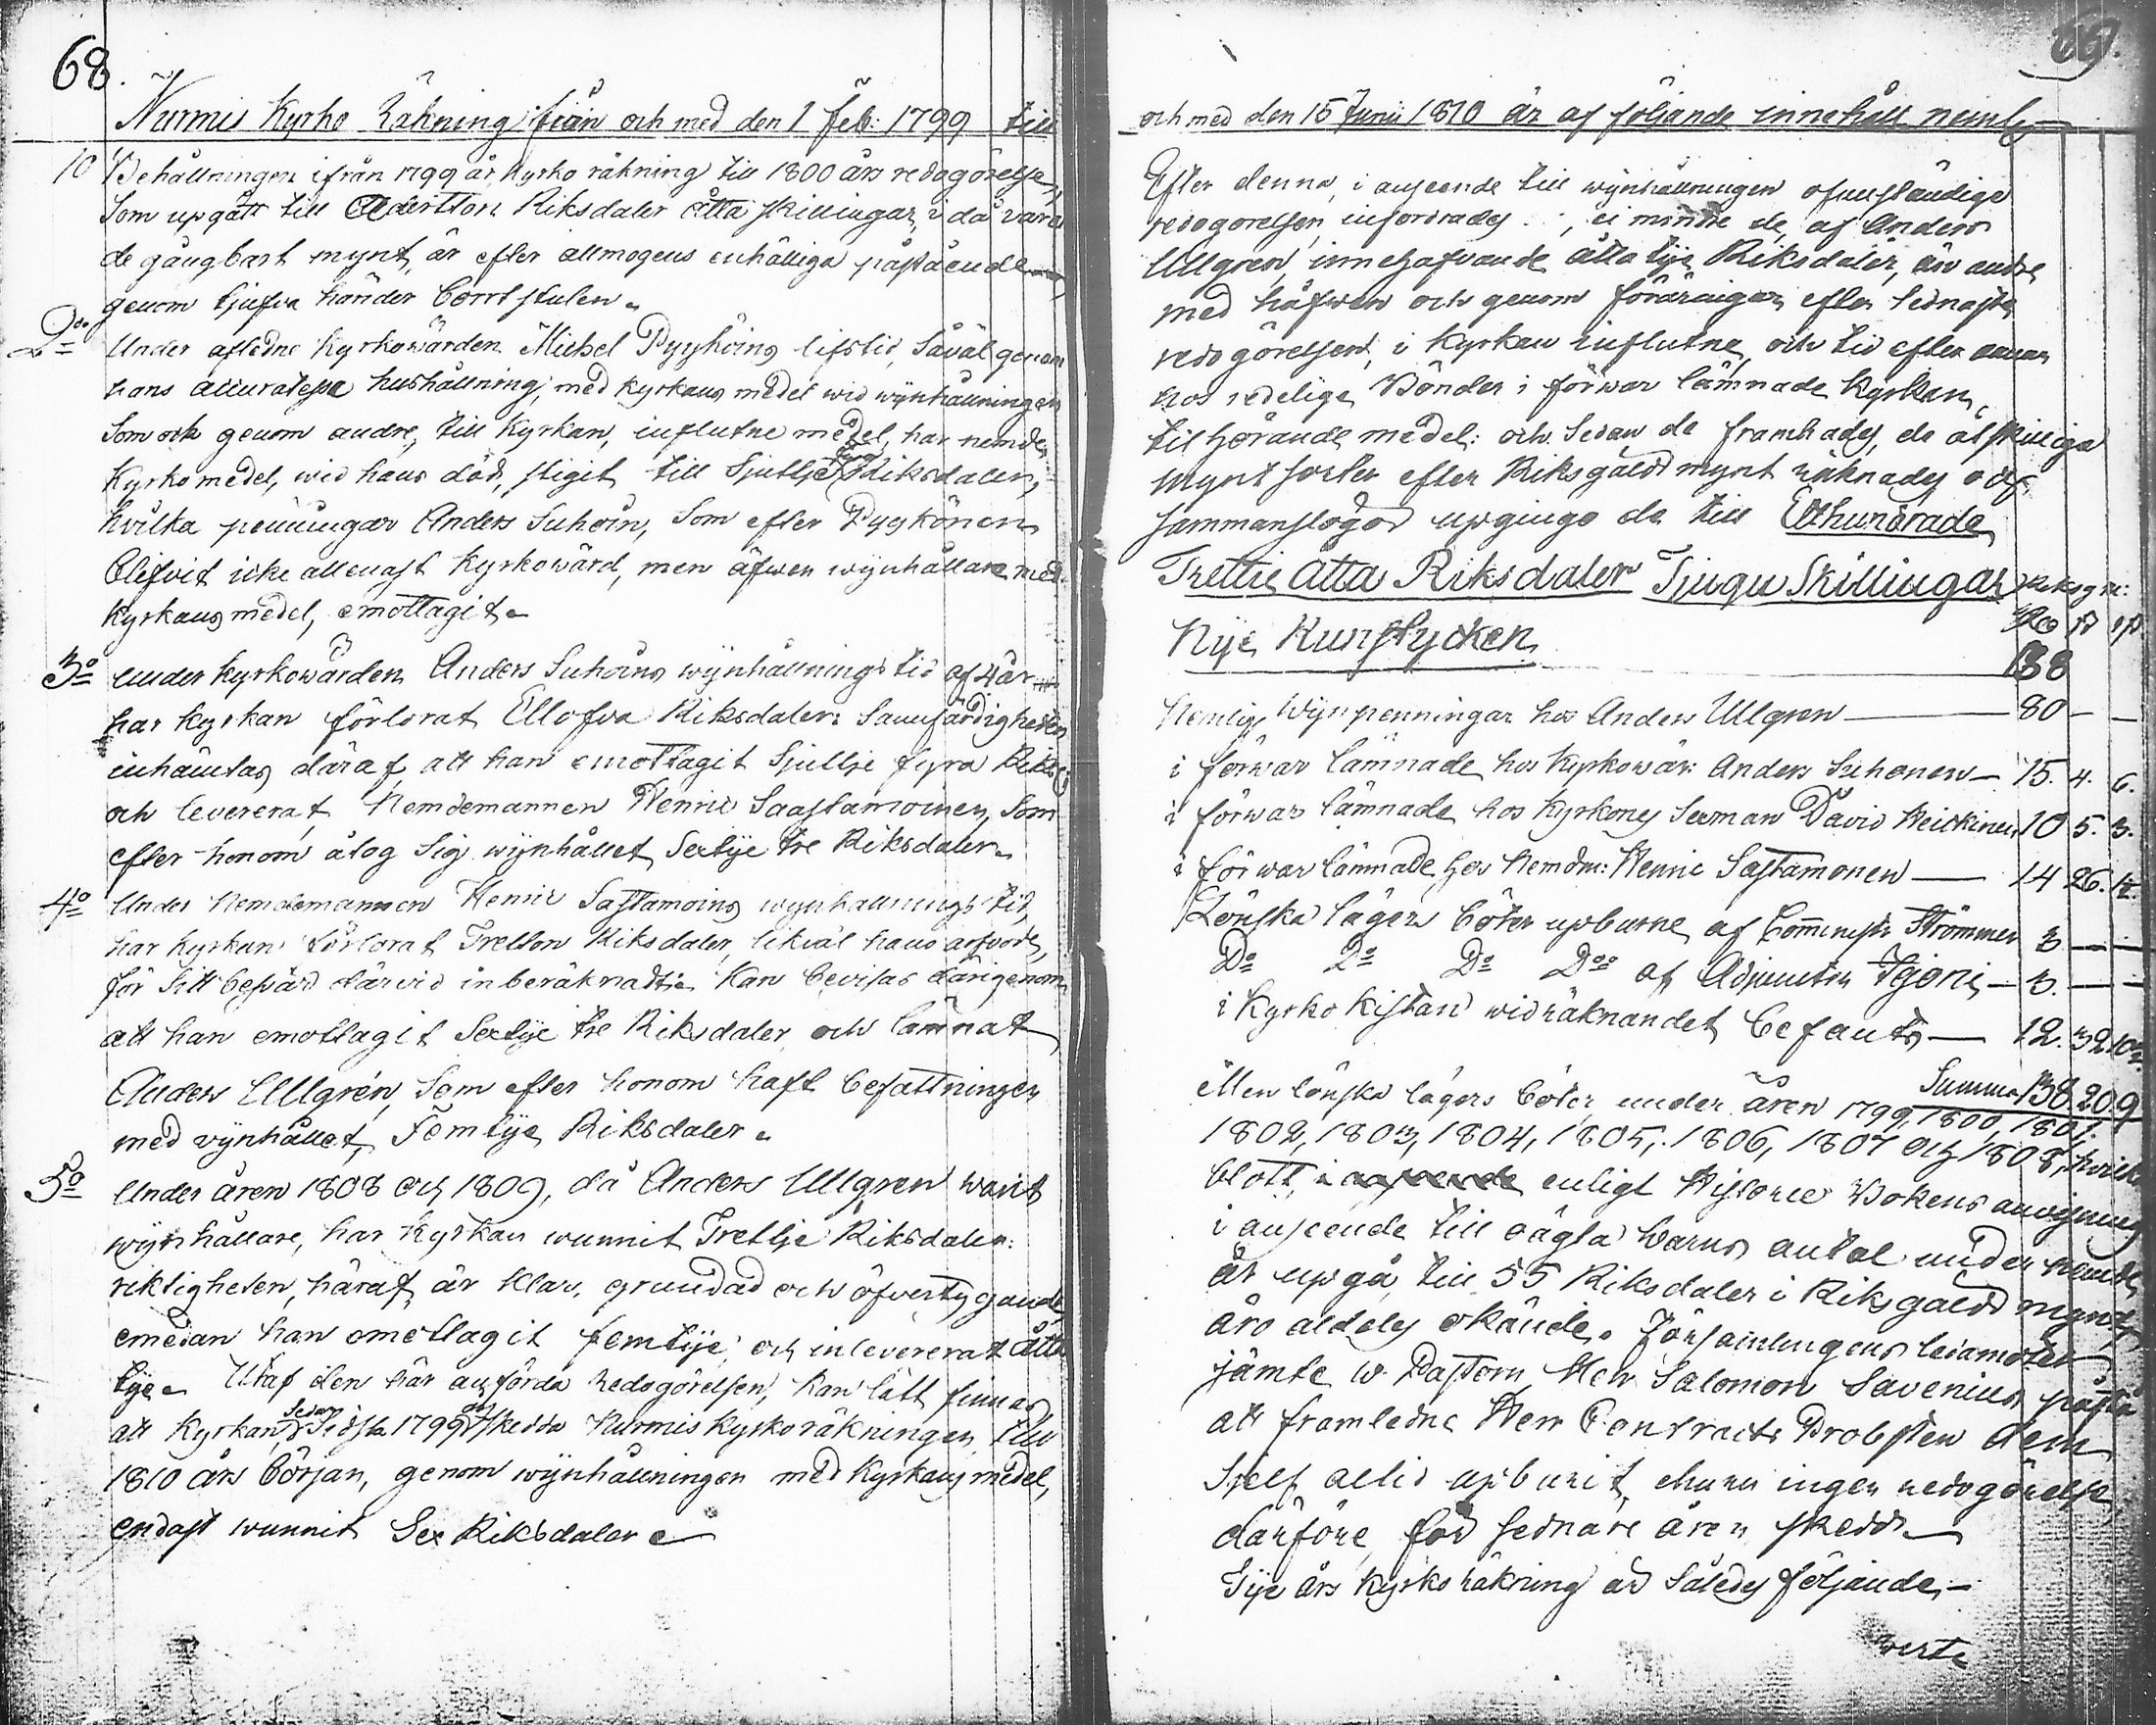 68.
Nurmis Kyrko Räkning ifrån och med den 1 Feb: 1799 till
1o Behållningen ifrån 1799 år Kyrko räkning till 1800 års redogörelse,
Som upgått till Adertton Riksdaler åtta skillingar, i då varan
de gångbart mynt, är efter allmogens enhälliga påstående
genom tjufva händer bortstulen.
2do Under afledne Kyrkowärden Michel Pyyköins lifstid, såväl genom
hans accuratessa hushållning, med Kyrkans medel wid wijnhållningen
Som och genom andre, till Kyrkan, influtne medel, har nemde
Kyrkomedel, wid hans död, stiget till Sjuttje fyra Riksdaler,
hvilka penningar Anders Suhoin, Som efter Pyykönen
blifvit icke allenast Kyrkowärd, men äfwen wijnhållare med
Kyrkans medel, emottagit.
3o under kyrkowärden Anders Suhoins wijnhållnings tid af 4 år
har Kyrkan förlorat Ellofva Riksdaler: Sannfärdigheten
inhämtas däraf, att han emottagit Sjuttje fyra Riksd
och levererat Nemdemannen Henric Saastamoinen, Som
efter honom åtog Sig wijnhållet Sextije tre Riksdaler.
4o Under Nemdemannen Henric Sastamoins wijnhållnings tid,
har Kyrkan förlorat Tretton Riksdaler, likväl hans arfvode,
för sitt besvärd därvid inberäknadt: Kan bevisas därigenom
att han emottagit Sextije tre Riksdaler och lämnat
Anders Ullgrén, Som efter honom haft befattningen
med vijnhållet, Femtije Riksdaler.
5o Under åren 1808 och 1809, då Anders Ullgren warit
wijnhållare, har Kyrkan wunnit Trettije Riksdaler:
riktigheten, häraf, är klar, grundad och öfvertygande,
emedan han emottagit femtije och inlevererat åtta
tije. Utaf den här anförda Redogörelsen, kan lätt finnas
att Kyrkan, Sedan Sidsta 1799 års skedda Nurmis Kyrkoräkningen, till
1810 års början, genom wijnhållningen med Kyrkans medel,
endast wunnit Sex Riksdaler
69.
och med den 15 Junii 1810 är af följande innehåll nemlig
Efter denna, i anseende till wijnhållningen ofullständige
redogörelsen, infordrades, ei mindre de, af Anders
Ullgren, innehafvande åtta tije Riksdaler, än andre
med håfwen och genom föräringar efter Sednaste
redogörelsen, i Kyrkan influtne, och tid efter annan
hos redelige Bönder i förwar lämnade Kyrkan
tilhörande medel: och Sedan de framhades, de åtskilliga
mynt sorter efter Riksgälds mynt räknades och
sammanslogos upgingo de till Etthundrade
Trettie åtta Riksdaler Tjugu Skillingar Riksg m:
Nije Runstycken
138
Nemlige Wijnpenningar hos Anders Ullgren — 80 — —
i förwar lämnade hos Kyrkowär: Anders Suhonen — 15. 4. 6.
i förwar lämnade hos Kyrkones Sexman David Heickinen 10 5. 3.
i förwar lämnade hos Nemdm: Henric Sastamonen — 14 26. 12.
Lönska lägers böter upburne af Comminister Strömmer 3 — —
Do Do Do Do af Adjuncten Ygoni — 3. — —
i Kyrko Kistan wid räknandet befants — 12. 32 10
Summa 138. 20. 9
Men lönska lägers böter under åren 1799, 1800, 1801,
1802, 1803, 1804, 1805, 1806, 1807 och 1808, hvilka
blott, enligt Historie Bokens anvisning
i anseende till oägta barns antal under nemde
år upgå till 55 Riksdaler i Riksgälds mynt,
äro aldeles okände. Församlingens ledamöter
jämte w. Pastorn Herr Salomon Savenius påstå
att framledne Herr Contracts Probsten dem
Sjelf altid upburit, ehuru ingen redogörelse
därföre för sednare åren skedt.
Tije års Kyrko räkning är Således följande.
verte